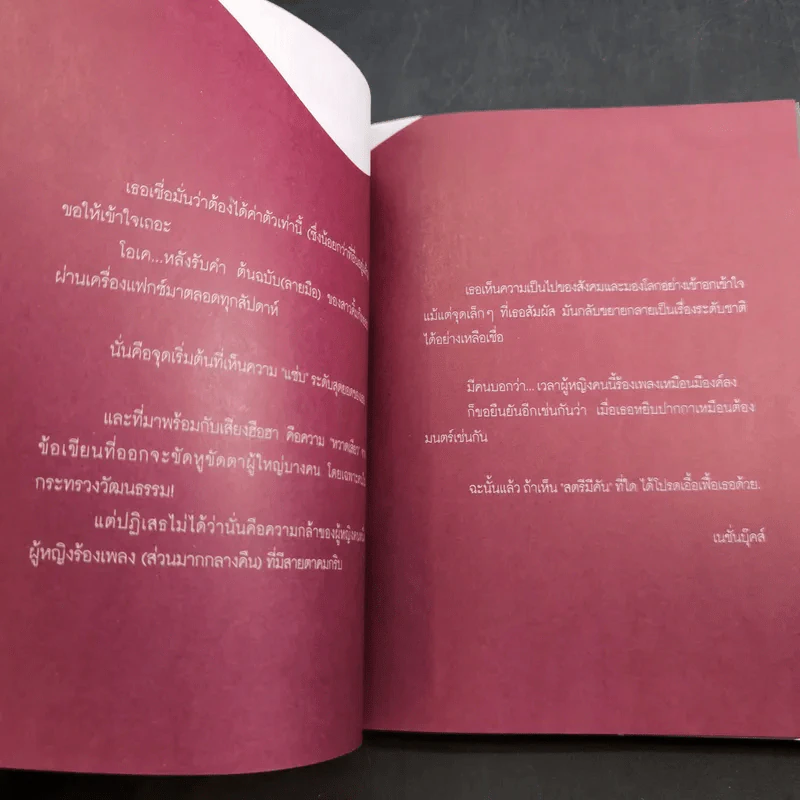 เธอเชื่อมั่นว่าต้องได้ค่าตัวเท่านี้ (ซึ่งน้อยกว่าที่
ขอให้เข้าใจเถอะ
โอเค...หลังรับคำ ต้นฉบับ(ลายมือ) ของสาว
ผ่านเครื่องแฟกซ์มาตลอดทุกสัปดาห์
นั่นคือจุดเริ่มต้นที่เห็นความ "แซ่บ" ระดับสุดยอดของ
และที่มาพร้อมกับเสียงฮือฮา คือความ "หวาดเสียว"
ข้อเขียนที่ออกจะขัดหูขัดตาผู้ใหญ่บางคน โดยเฉพาะ
กระทรวงวัฒนธรรม!
แต่ปฏิเสธไม่ได้ว่านั่นคือความกล้าของผู้หญิง
ผู้หญิงร้องเพลง (ส่วนมากกลางคืน) ที่มีสายตาคมกริบ
เธอเห็นความเป็นไปของสังคมและมองโลกอย่างเข้าอกเข้าใจ
แม้แต่จุดเล็กๆ ที่เธอสัมผัส มันกลับขยายกลายเป็นเรื่องระดับชาติ
ได้อย่างเหลือเชื่อ
มีคนบอกว่า... เวลาผู้หญิงคนนี้ร้องเพลงเหมือนมีองค์ลง
ก็ขอยืนยันอีกเช่นกันว่า เมื่อเธอหยิบปากกาเหมือนต้อง
มนตร์เช่นกัน
ฉะนั้นแล้ว ถ้าเห็น "สตรีมีคัน" ที่ใด ได้โปรดเอื้อเฟื้อเธอด้วย.
เนชั่นบุ๊คส์